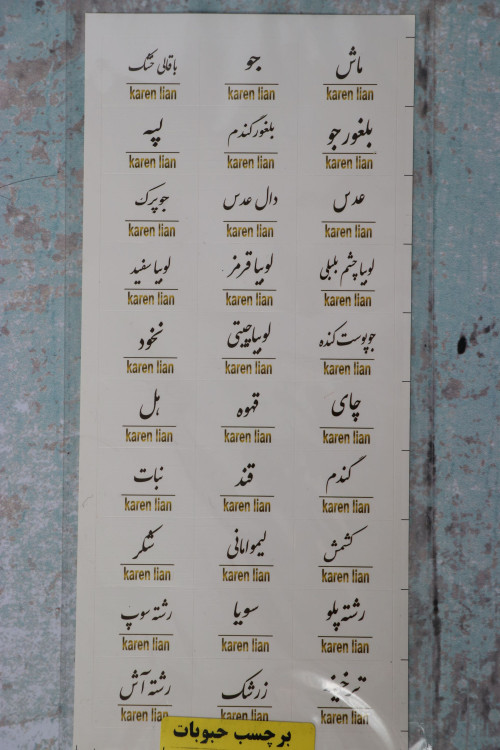 ماش جو باقالی خشک
karen lian karen lian karen lian
بلغور جو بلغور گندم لپه
karen lian karen lian karen lian
عدس دال عدس جو پرک
karen lian karen lian karen lian
لوبیا چشم بلبلی لوبیا قرمز لوبیا سفید
karen lian karen lian karen lian
جو پوست کنده لوبیا چیتی نخود
karen lian karen lian karen lian
چای قهوه هل
karen lian karen lian karen lian
گندم قند نبات
karen lian karen lian karen lian
کشمش لیمو امانی شکر
karen lian karen lian karen lian
رشته پلو سویا رشته سوپ
karen lian karen lian karen lian
ترخینه زرشک رشته آش
karen lian karen lian karen lian
برچسب حبوبات